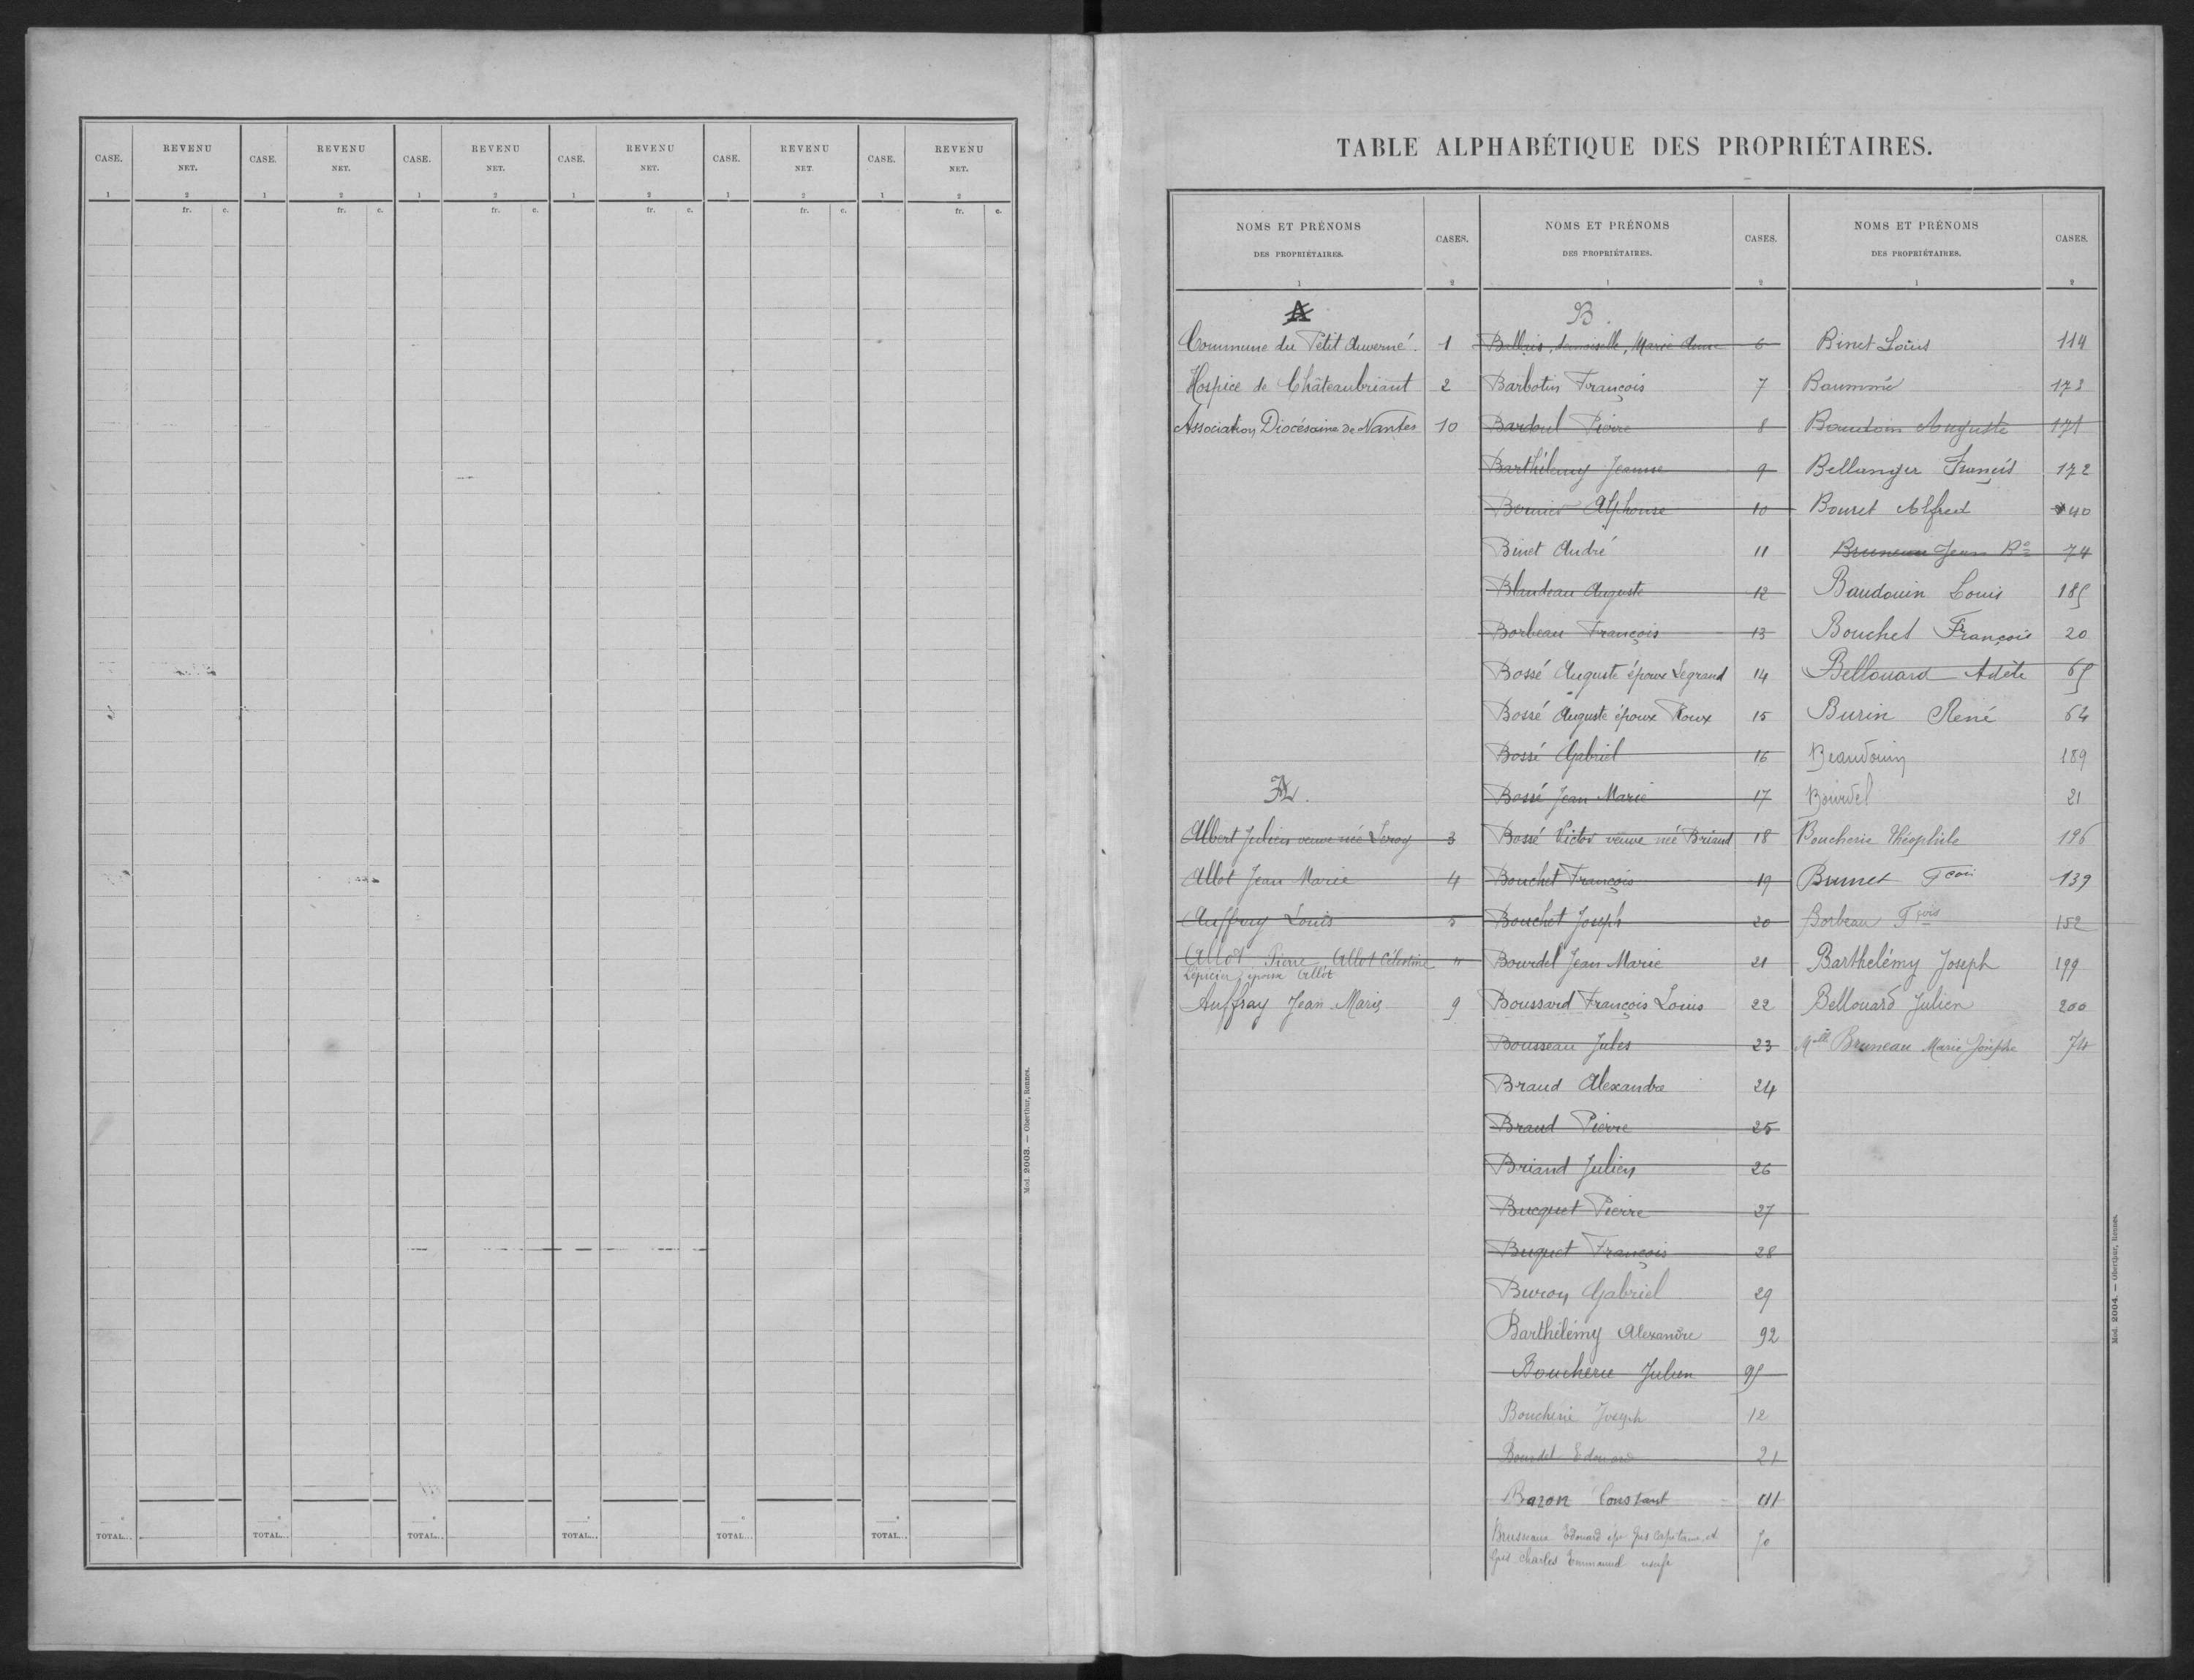 CASE. REVENU NET. CASE. REVENU NET. CASE. REVENU NET. CASE. REVENU NET. CASE. REVENU NET. CASE. REVENU NET.
1 2 1 2 1 2 1 2 1 2 1 2
fr. c. fr. c. fr. c. fr. c. fr. c. fr. c.
TOTAL... TOTAL... TOTAL... TOTAL... TOTAL... TOTAL...
Mod. 2003. — Oberthur, Rennes.
TABLE ALPHABÉTIQUE DES PROPRIÉTAIRES.
NOMS ET PRÉNOMS DES PROPRIÉTAIRES. CASES.
1 2
A
Commune du Petit Auverné. 1
Hospice de Châteaubriant 2
Association Diocésaine de Nantes 10
A.
Albert Julien veuve née Leroy 3
Allot Jean Marie 4
Auffray Louis 5
Allot Pierre, Allot Célestine 4
Lepicier époux Allot
Auffray Jean Marie 9
NOMS ET PRÉNOMS DES PROPRIÉTAIRES. CASES.
1 2
B.
demoiselle, Marie 6
Barbotin François 7
Bardoul Pierre 8
Barthélemy Jeanne 9
Alphonse 10
Binet André 11
Blandeau Auguste 12
Borbeau François 13
Bossé Auguste époux Legrand 14
Bossé Auguste époux Roux 15
Bossé Gabriel 16
Bossé Jean Marie 17
Bossé Victor veuve née Briand 18
Bouchet François 19
Bouchet Joseph 20
Bourdel Jean Marie 21
Boussard François Louis 22
Bousseau Jules 23
Braud Alexandre 24
Braud Pierre 25
Briand Julien 26
Bucquet Pierre 27
Buquet François 28
Buron Gabriel 29
Barthélémy Alexandre 92
Boucherie Julien 95
Boucherie Joseph 12
Bourdel Edouard 21
Bazon Constant
Edouard et
Charles Emmanuel 70
NOMS ET PRÉNOMS DES PROPRIÉTAIRES. CASES.
1 2
Binet Louis 114
173
Baudoin Auguste 171
Bellanger Francis 172
Bouret Alfred 40
Bruneau Jean Bte 74
Baudouin Louis 185
Bouchet François 20
Bellouard Adèle 65
Burin René 64
Beaudouin 189
Bourdel 21
Boucherie Théophile 196
Brunet Fçois 139
Borbeau Fçois 152
Barthelémy Joseph 199
Bellouard Julien 200
Melle Bruneau Marie Josèphe 74
Mod. 2004. — Oberthur, Rennes.